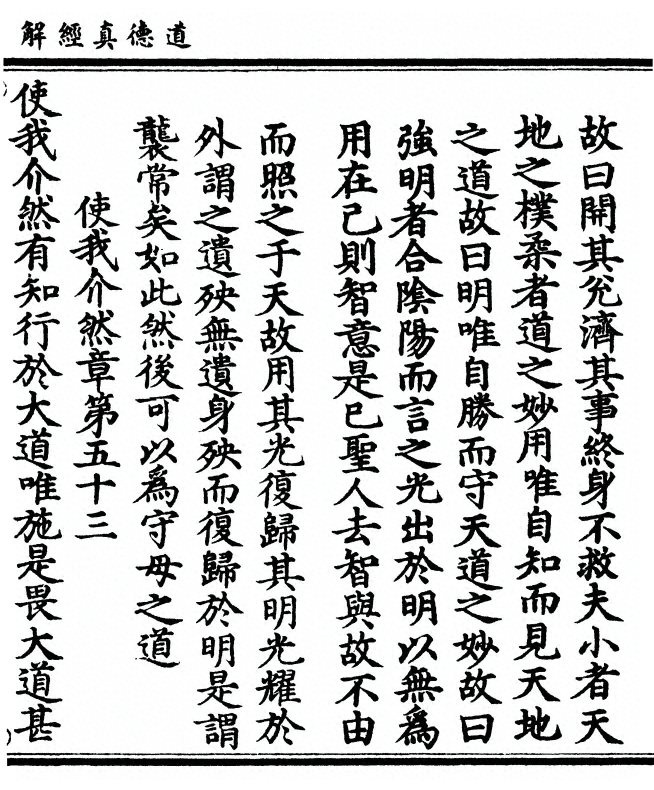 道德真經解
故曰開其兊濟其事終身不救夫小者天
地之樸柔者道之妙用唯自知而見天地
之道故曰明唯自勝而守天道之妙故曰
強明者合陰陽而言之光出於明以無爲
用在己則智意是已聖人去智與故不由
而照之于天故用其光復歸其明光耀於
外謂之遺殃無遺身殃而復歸於明是謂
襲常矣如此然後可以爲守母之道
使我介然章第五十三
使我介然有知行於大道唯施是畏大道甚